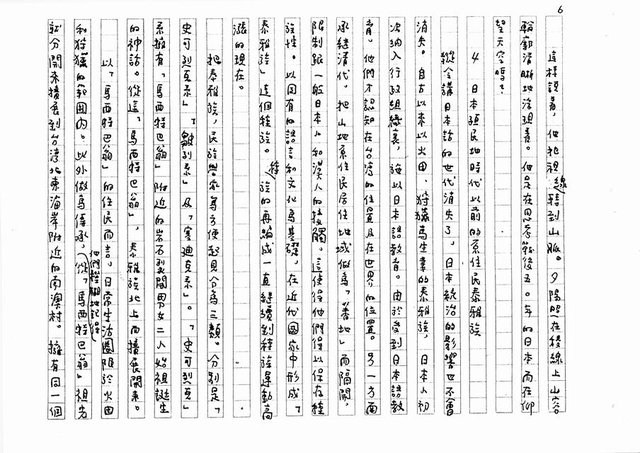 6
這樣說著,他把視線轉到山脈。夕陽照在稜線上山谷
輪廓清晰地浮現著。他是在思考戰後五〇年的日本而在仰
望天空嗎?
4 日本殖民地時代以前的原住民泰雅族
縱令講日本話的世代消失了,日本統治的影響也不會
消失。自古以來以火田、狩獵為生業的泰雅族,日本人初
次納入行政組織裏,施以日本語教育。由於受到日本語教
育,他們才認知在台灣的位置且在世界的位置。另一方面
承繼清代,把山地原住民居住地域做為「蕃地」而隔開,
限制跟一般日本人和漢人的接觸。這使得他們得以保存種
族性。以固有的語言和文化為基礎,在近代國家中形成「
泰雅族」這個種族。種族的再編成一直繼續到種族運動高
漲的現在。
把泰雅族,民族學家為方便起見分為三類。分別是「
史可列克系」、「
系」及「賽迪克系」。「史可列克
系」擁有「馬西特巴翁」附近的岩石裂開男女二人始祖誕生
的神話。從這「馬西特巴翁」,泰雅族北上而擴展開來。
以「馬西特巴翁」的住民而言,日常生活圈限於火田
和狩獵的範圍內。此外做為傳承,他們經驗地記得(從「馬西特巴翁」祖先
就分開來擴展到台灣北東海岸附近的南澳村。擁有同一個